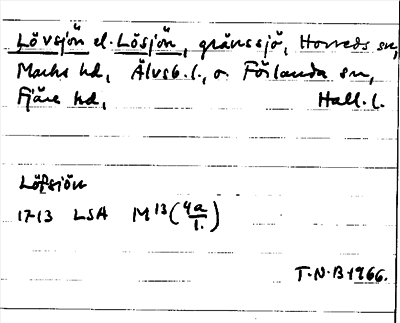 Lövsjön el. Lösjön, gränssjö, Horreds sn,
Marks hd, Älvsb. l., o. Förlanda sn,
Fjäre hd, Hall. l.
Löfsjön
1713 LSA M13 (4a/1.)
T.N.B 1966.